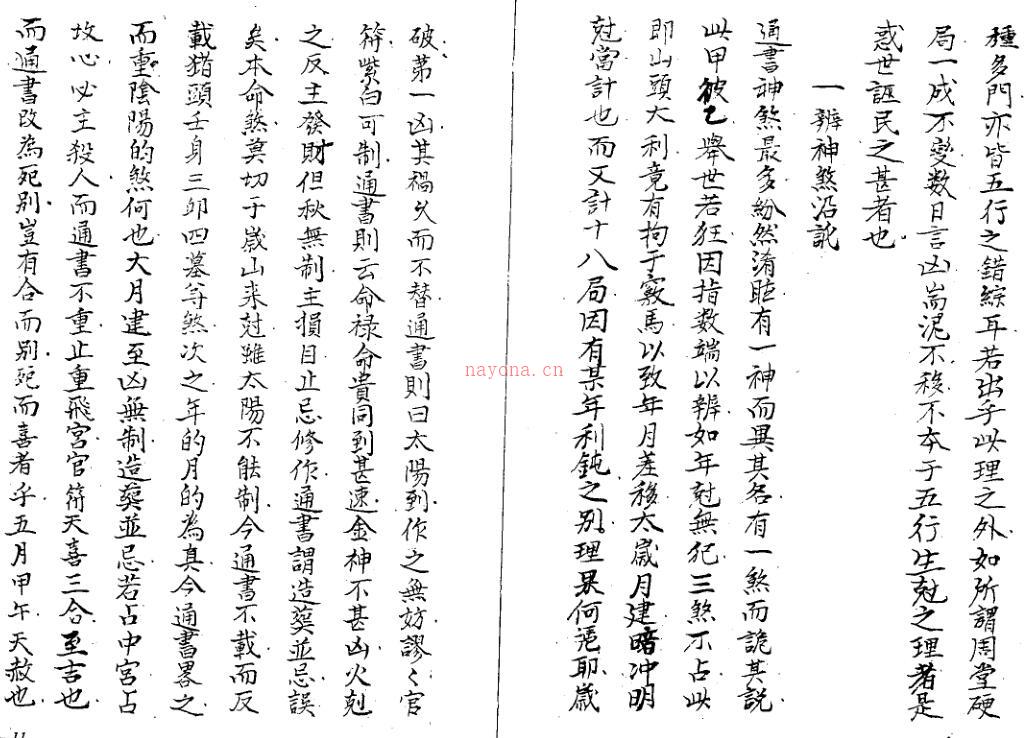 種多門亦皆五行之錯綜耳若出乎此理之外如所謂周堂硬
局一成不變数日言凶耑泥不移不本于五行生尅之理者是
惑世誣民之甚者也
一辨神煞沿訛
通書神煞最多紛然淆眩有一神而異其名有一煞而詭其説
此甲彼乙舉世若狂因指数端以辨如年尅無犯三煞不占此
即山頭大利竟有拘于竅馬以致年月差移太歲月建暗冲明
尅當計也而又計十八局因有某年利鈍之别理果何憑耶歳
破苐一凶其禍久而不替通書則曰太陽到作之無妨謬〻官
符紫白可制通書則云命禄命貴同到甚速金神不甚凶火剋
之反主發財但秋無制主損目止忌修作通書謂造葬並忌誤
矣本命煞莫切于歲山来尅雖太陽不能制今通書不載而反
載猪頭壬身三卯四墓等煞次之年的月的為真今通書畧之
而重陰陽的煞何也大月建至凶無制造葬並忌若占中宮占
坟心必主殺人而通書不重止重飛宮官符天喜三合至吉也
而通書改為死别豈有合而别死而喜者乎五月甲午天赦也
nayona.cn